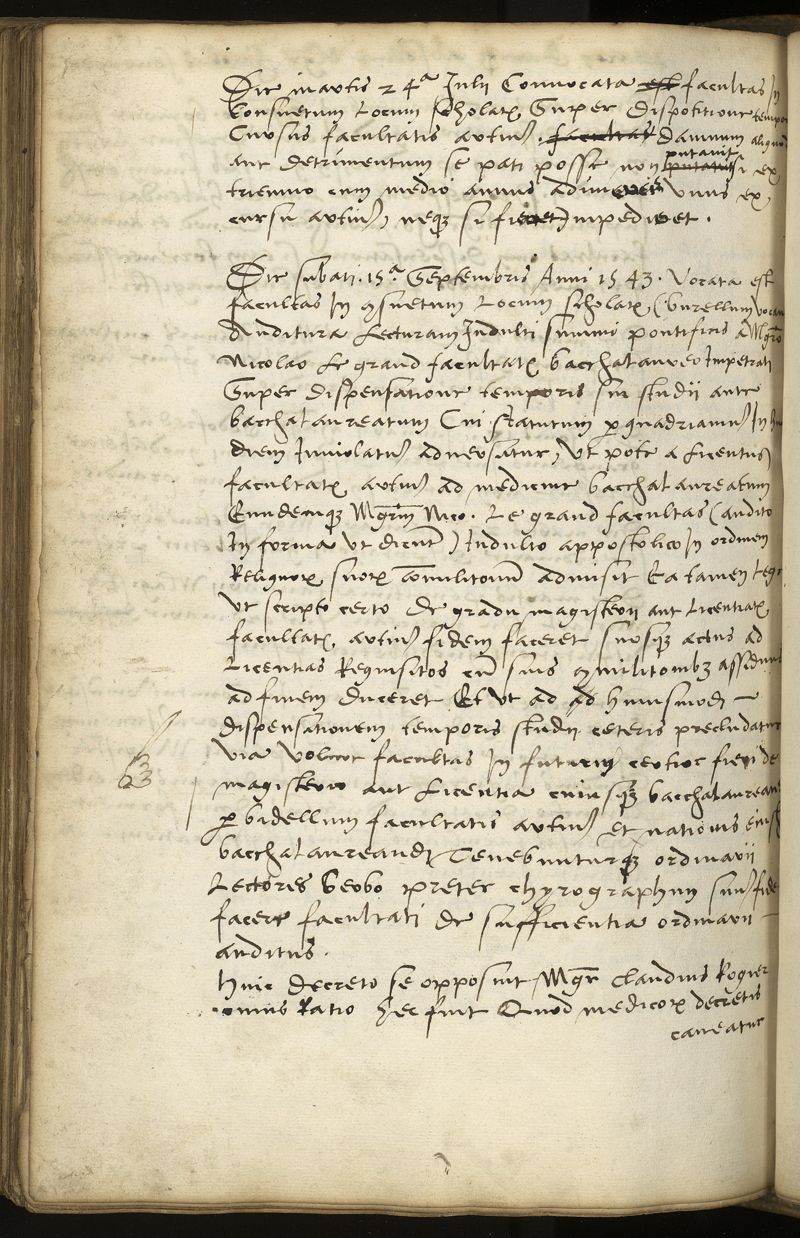 Die martis 24ª Julii Convocata est facultas In
Consuetum Locum scholarꝝ Super dispositione
Cursus facultatis artiū. facultas damnum aliquod
aut detrimentum se pati posse non putavit putavit si ex
triennio cum medio annus adim unus ex
cursu artiū, neqꝫ si fieret Impediret.
Die sabati. 15ª Septembris Anni 1543. Vocata est
facultas In ꝯsuetum Locum scholarꝝ (burellum vocant
Auditura Lecturam Indulti summi pontificis a Mgrō
Nicolao Le grand facultatꝭ bacchalaureo Impetrati
Super dispensatione temporis sui studii ante
bacchalaureatum Cui statutum ꝑ quadrianniū In
diem Inviolatū adversatur, Ut pote a licentiis
facultatꝭ artiū ad medicine bacchalaureatum
Eundemqꝫ Mgrm Nico. Le grand facultas (audito
In forma ut dicunt) Indulto appostolico In ordinem
Reliquorꝝ suorꝝ comilitonū admisit Ea tamen Lege
Ut scripto certo de gradu magisterii aut Licentiatꝭ
facultatꝭ. artiū fidem faceret suosqꝫ actus ad
Licentias Requisitos cū suis ꝯmilitonibꝫ assiduus
ad finem duceret Et ut ad ad huiusmodi
dispensationem temporis studii ceteris precludatur
via voluit facultas In futurum certior fieri de
magisterio aut Licentia cuiusqꝫ bacchalaureandi
ꝑ bidellum facultatis artiū et nationis eiusdē
bacchalaureandi Tenebunturqꝫ ordinarii
Lectores Verbo preter chyrographum suū fidē
facere facultati de sufficientia ordinarii
auditus.
Huic decreto se opposuit Mgr Claudius Rogier
cuius Ratio hec fuit Quod medicorꝝ decretis
caveatur